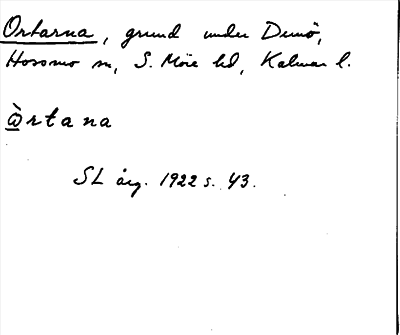 Ortarna, grund under Dunö,
Hossmo sn, S. Möre hd, Kalmar l.
ὼrtana
SL årg. 1922 s. 43.